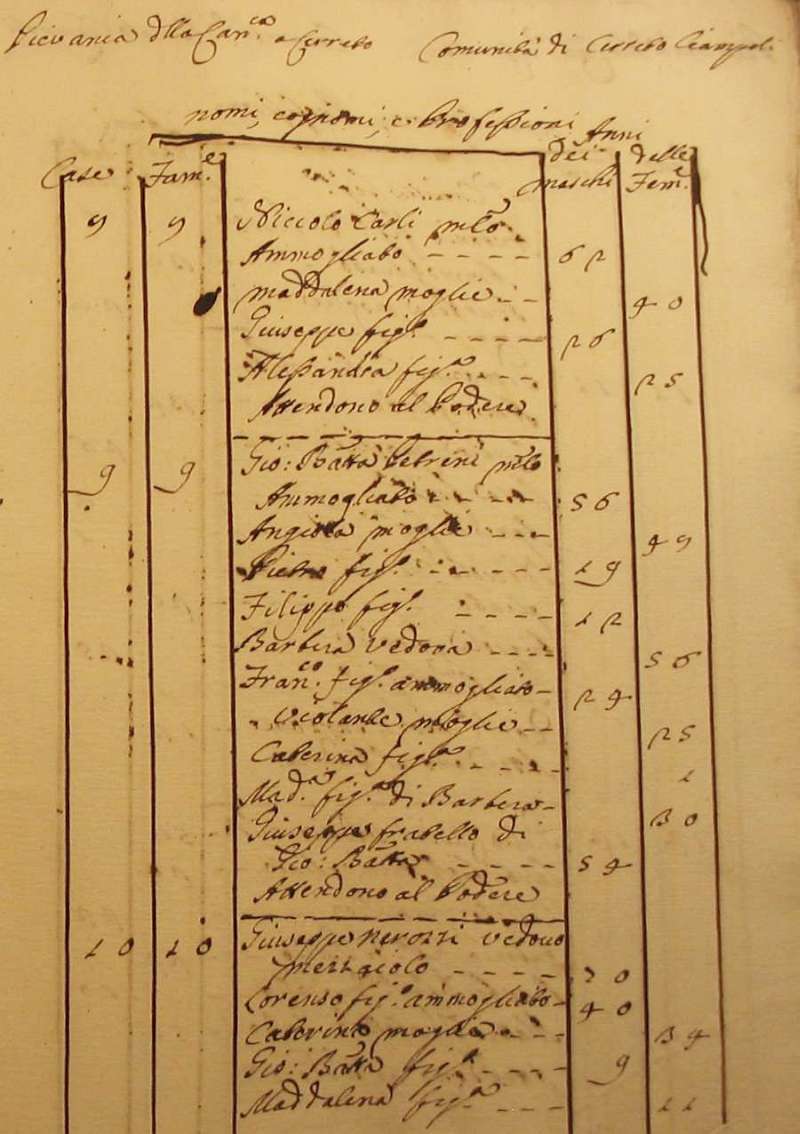 Pievania dlla Can.ca a Cerreto Comunità di Cerreto Ciampoli
nomi, cognomi, e Professioni Anni
Case Fam.e dei maschi delle Fem.e
9 9 Niccolò Carli m.to
Ammogliato - - - - 62
maddalena moglie - - 40
Giuseppe fig.o - - - - 26
Alessandra fig.a - - - 25
Attendono al Podere
9 9 Gio: Batta Petreni m.lo
Ammogliato - - - - 56
Angiola moglie - - - 49
Pietro fig.o - - - - - 19
Filippo fig.o - - - - 12
Barbera vedova - - - - 56
Fran.co fig.o ammogliato - 24
Violante moglie - - 25
Caterina fig.a - - - - 1
Mad.a fig.a di Barbera - 30
Giuseppe fratello di
Gio: Batta - - - - 54
Attendono al Podere
10 10 Giuseppe Nerozzi vedovo
mezzaiolo - - - - 70
Lorenso fig.o ammogliato - 40
Caterina moglie - - - 34
Gio: Batta fig.o - - - - 9
Maddalena fig.a - - - 11